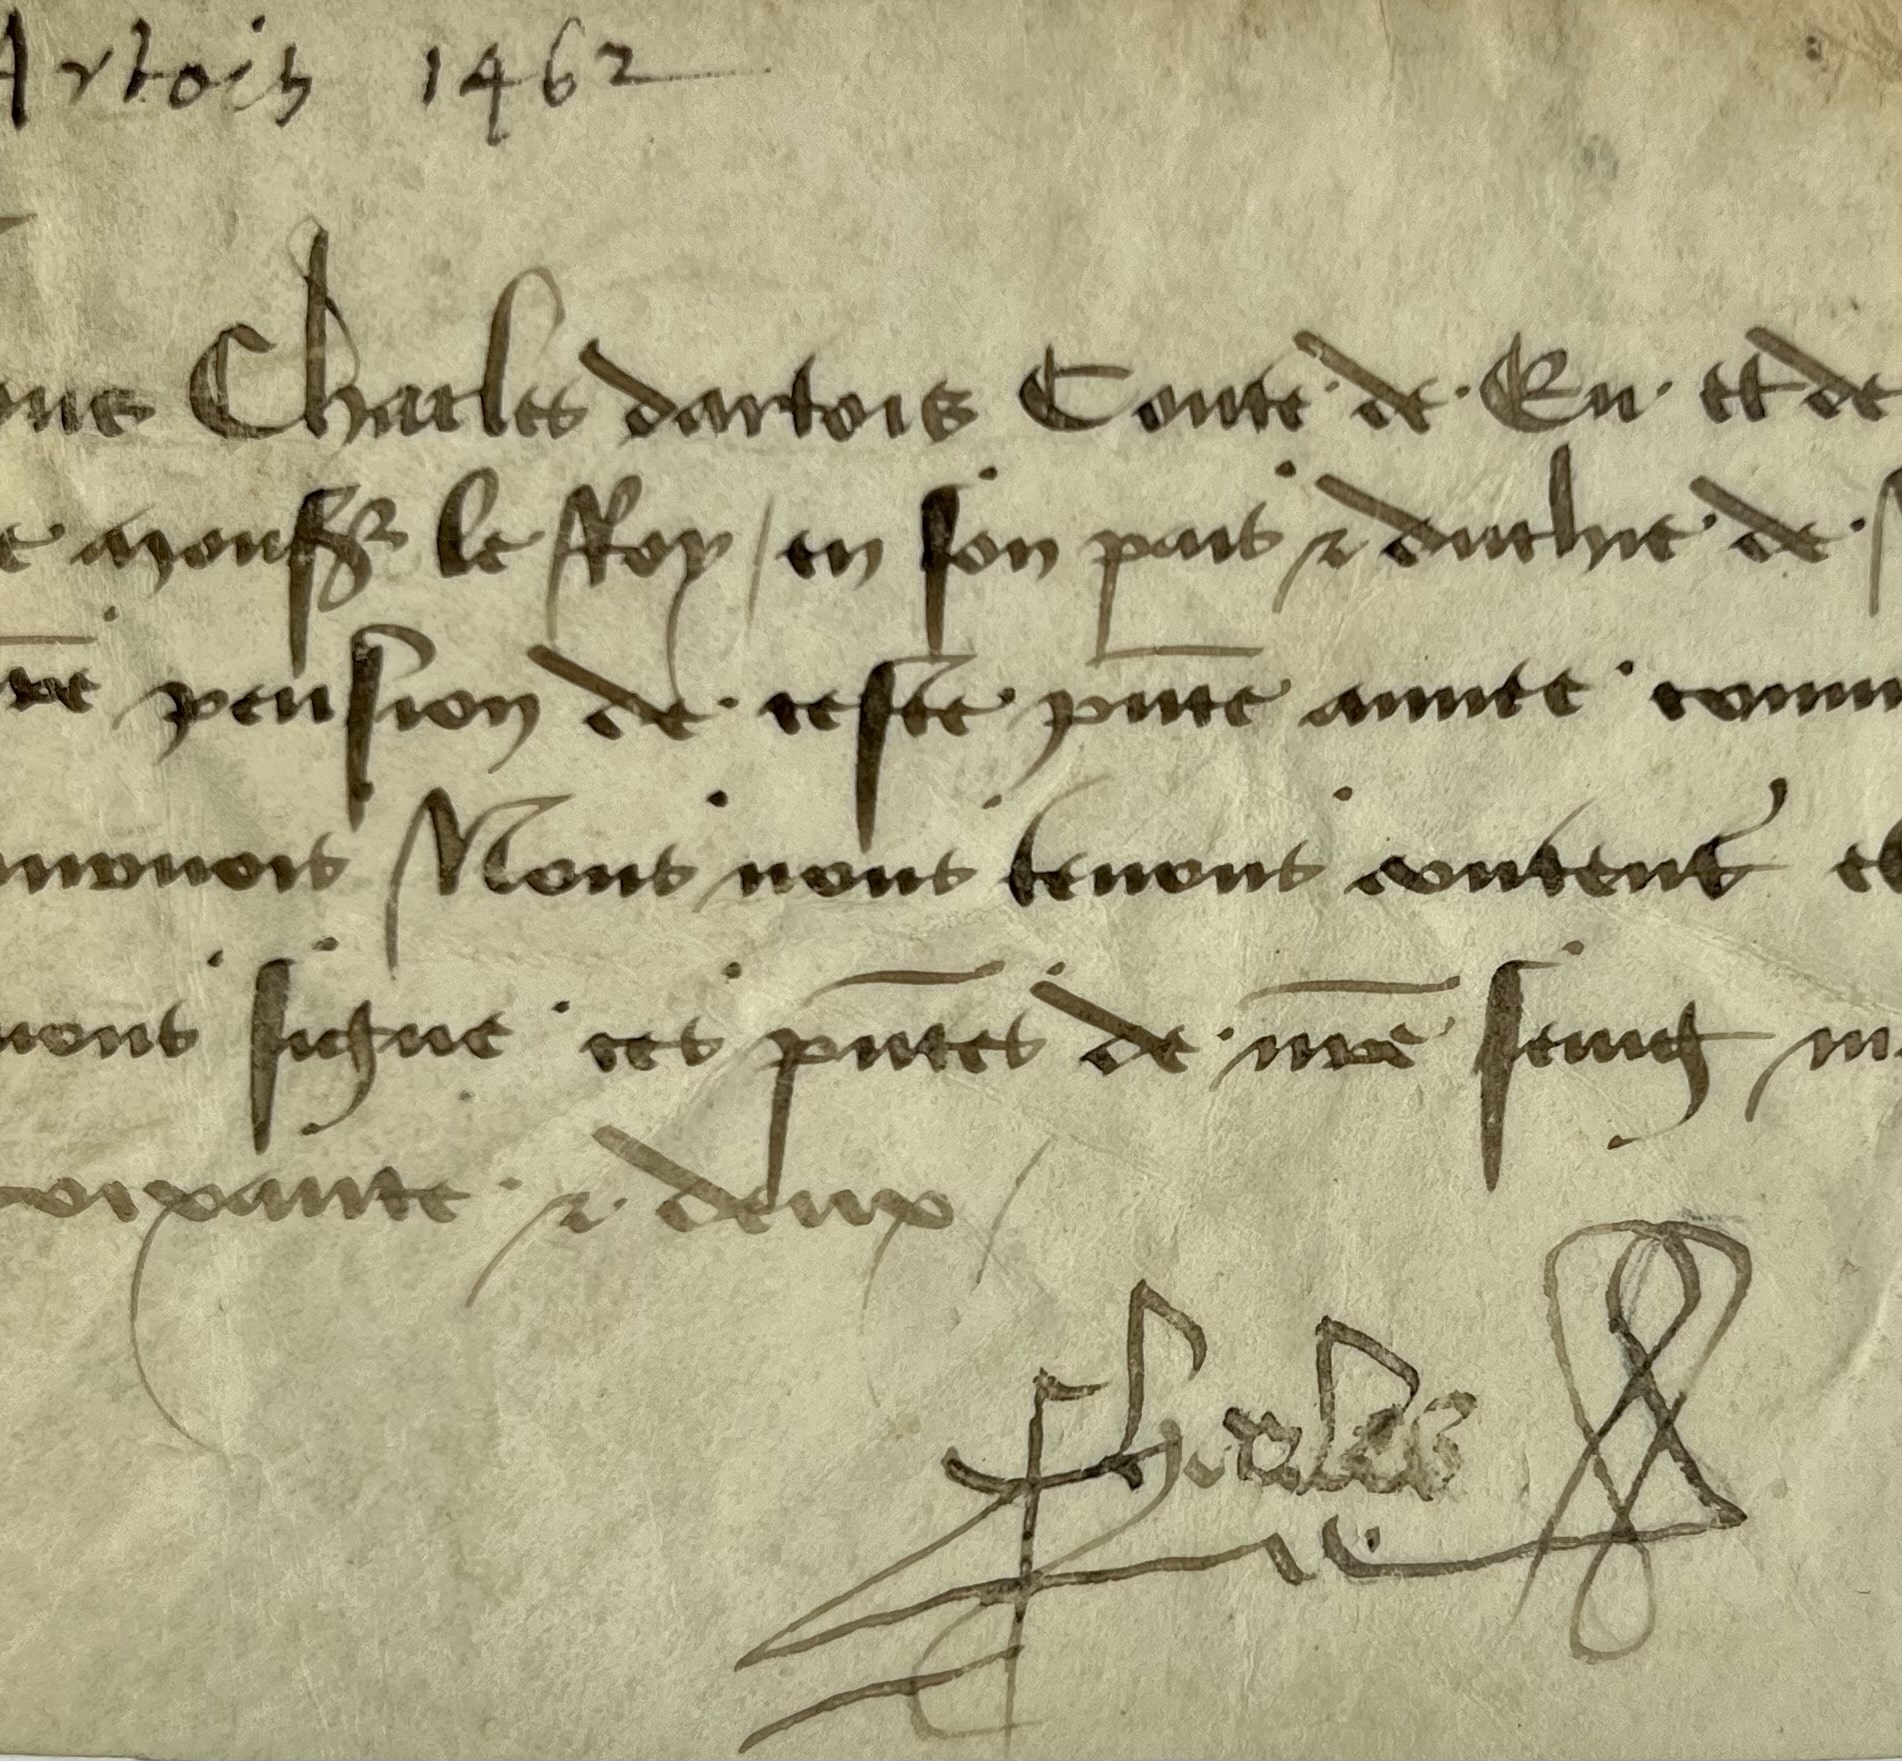 Artois 1462
ous Charles dartois Conte de Eu et de
e monsr le Roy / en son pais & duchie de
nre pension de ceste pnte annee comm
Nous nous tenons contens et
nons signe ces pntes de nre seing m
oixante & deux /
Charles